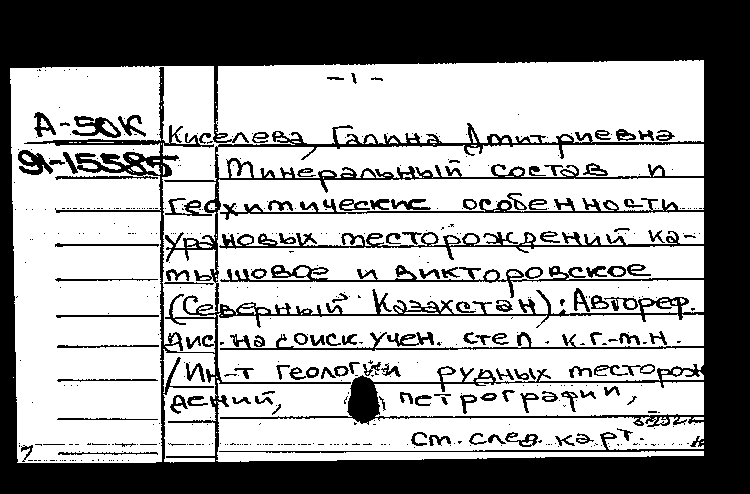 - 1 -
А-50К
91-15585
Киселева, Галина Дмитриевна
Минеральный состав и
геохимические особенности
урановых месторождений ка-
мышовое и викторовское
(Северный Казахстан): Автореф.
дис. на соиск. учен. степ. к.г.-м.н.
/Ин-т геологии рудных месторож
дений, петрографии,
см. след. карт.